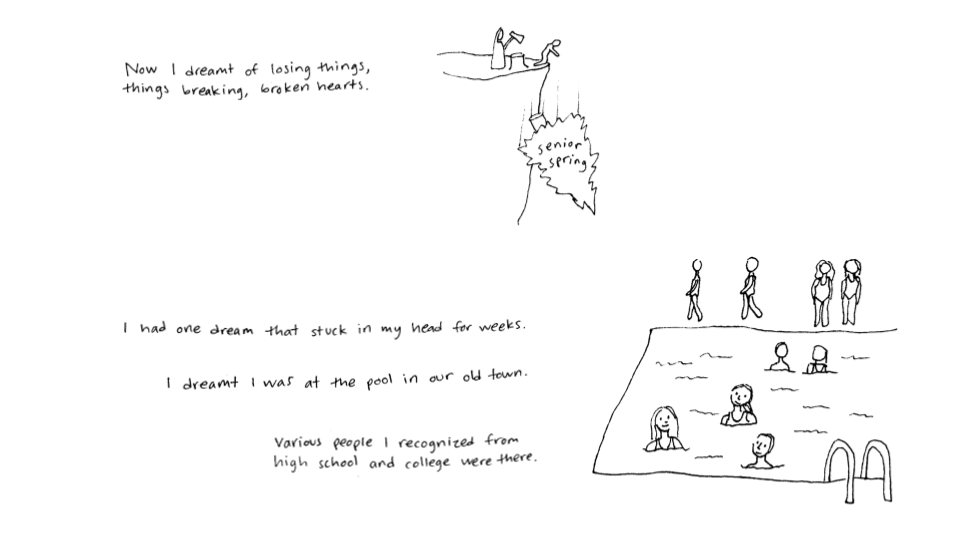 Now I dreamt of losing things,
things breaking, broken hearts.
senior
spring
I had one dream that stuck in my head for weeks.
I dreamt I was at the pool in our old town.
Various people I recognized from
high school and college were there.